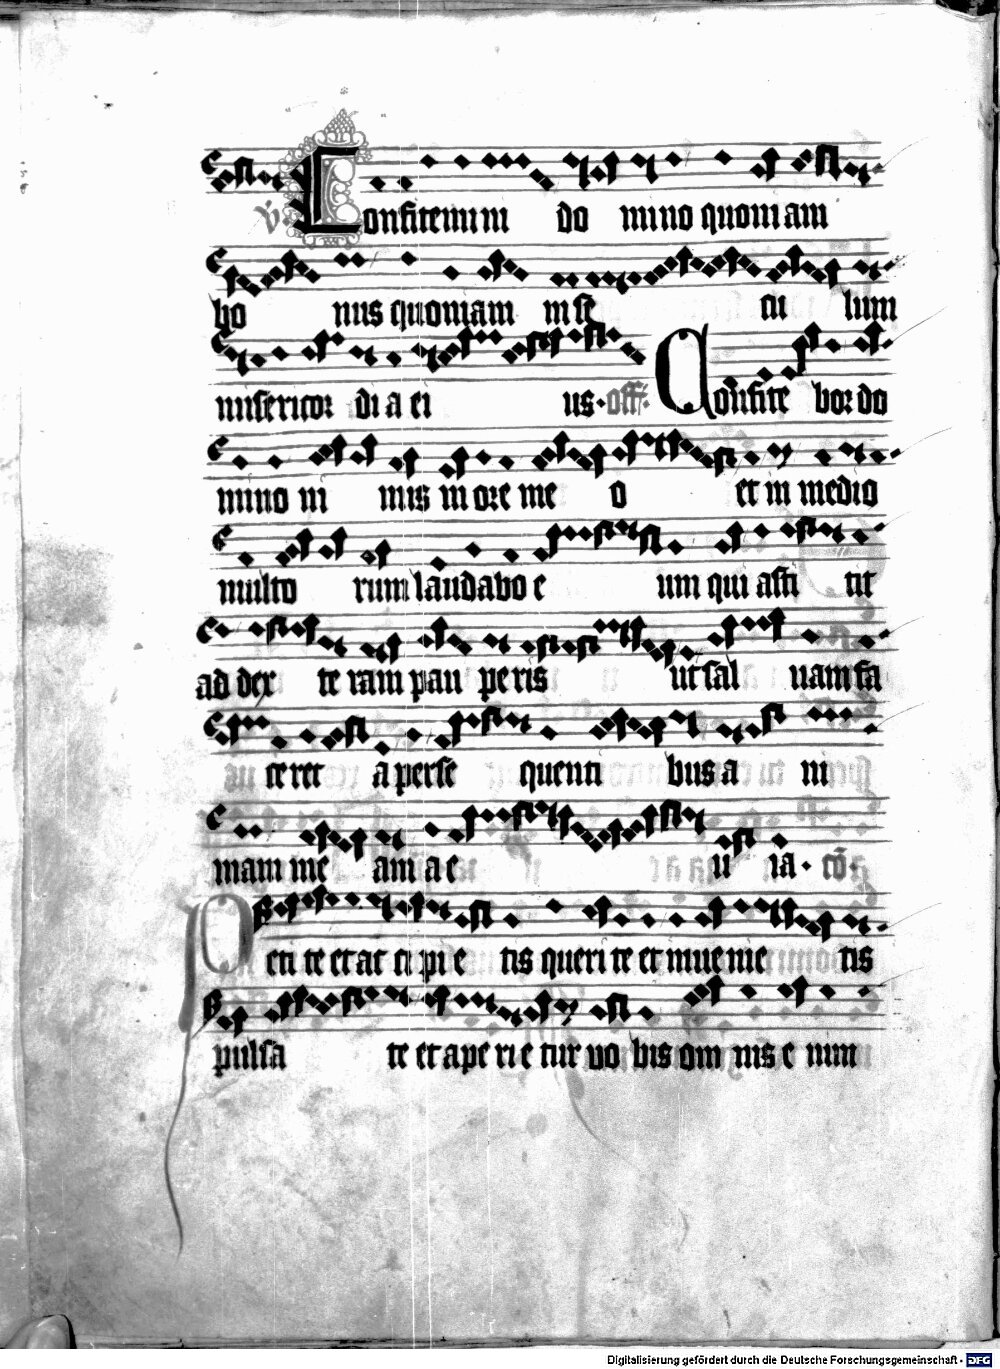 v̇. Confitemini do mino quoniam
bo nus quoniam in se cu lum
misericor di a ei us. off. Confite bor do
mino ni mis in ore me o et in medio
multo rum laudabo e um qui asti tit
ad dex te ram pau pe ris ut sal uam fa
ceret a perse quenti bus a ni
mam me am a e u ia. cō.
Peti te et ac ci pi e tis queri te et inue nie tis
pulsa te et ape ri e tur uo bis om nis e nim
Digitalisierung gefördert durch die Deutsche Forschungsgemeinschaft - DFG